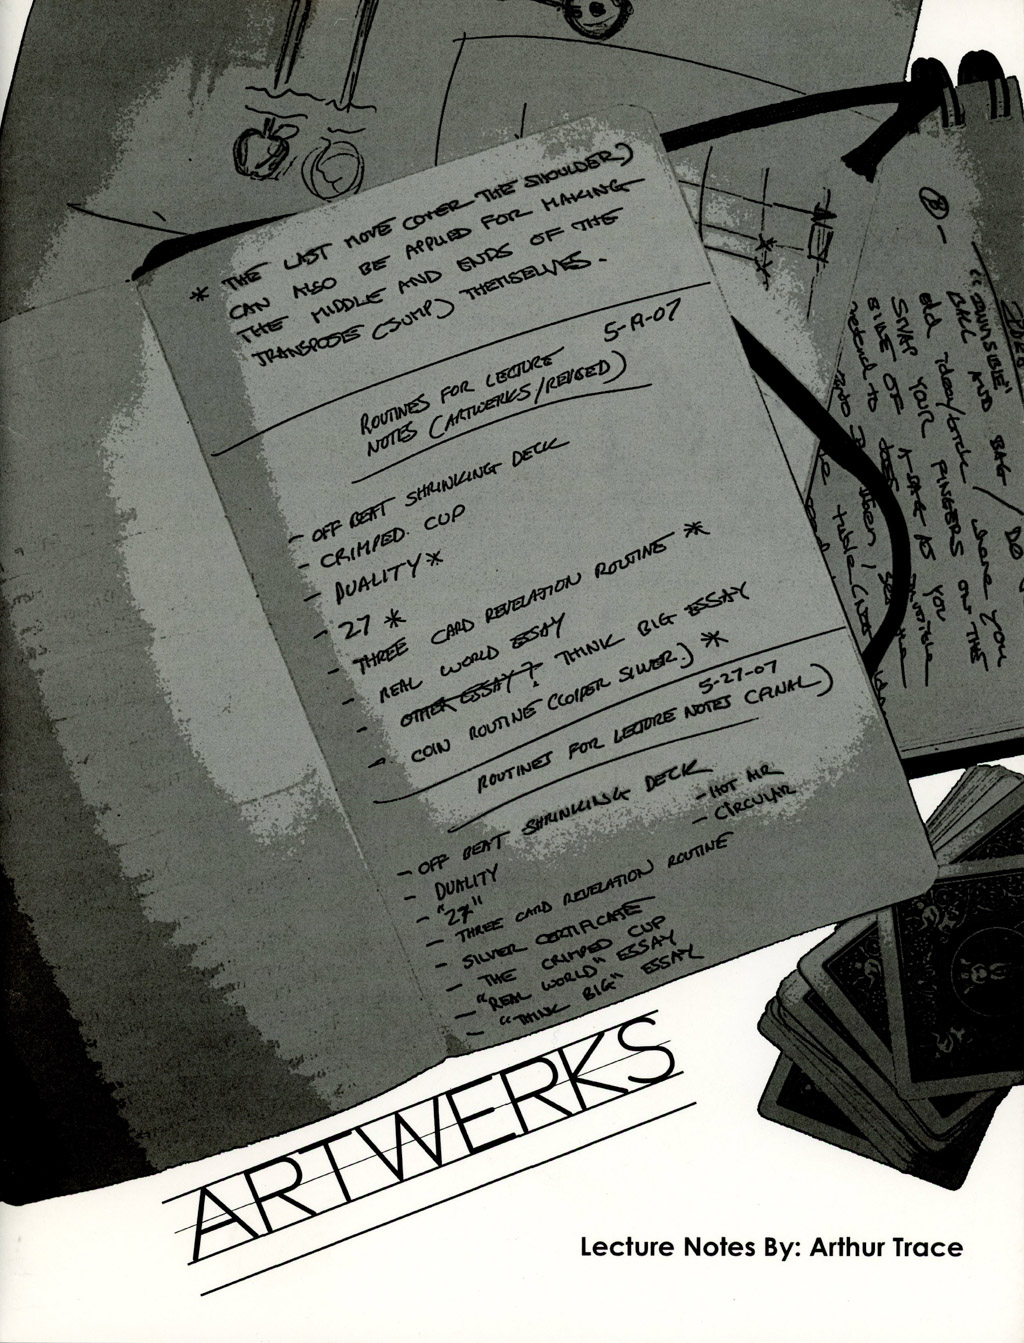 * THE LAST MOVE COVER THE SHOULDER)
CAN ALSO BE APPLIED FOR MAKING
THE MIDDLE AND ENDS OF THE
TRANSPOSE (JUMP) THEMSELVES.
5-19-07
ROUTINES FOR LECTURE
NOTES (ARTWERKS/REVISED)
- OFF BEAT SHRINKING DECK
- CRIMPED CUP
- DUALITY *
- 27 *
- THREE CARD REVELATION ROUTINE *
- REAL WORLD ESSAY
- OTHER ESSAY? THINK BIG ESSAY
- COIN ROUTINE (COPPER SILVER) *
5-27-07
ROUTINES FOR LECTURE NOTES (FINAL)
- OFF BEAT SHRINKING DECK
- HOT AIR
- DUALITY
- CIRCULAR
- "27"
- THREE CARD REVELATION ROUTINE
- SILVER CERTIFICATE
- THE CRIMPED CUP
- "REAL WORLD" ESSAY
- "THINK BIG" ESSAY
"INVISIBLE"
BALL AND BAG /
old idea/trick where you
SNAP YOUR FINGERS ON THE
SIDE OF A BAG AS YOU
pretend to
ARTWERKS
Lecture Notes By: Arthur Trace